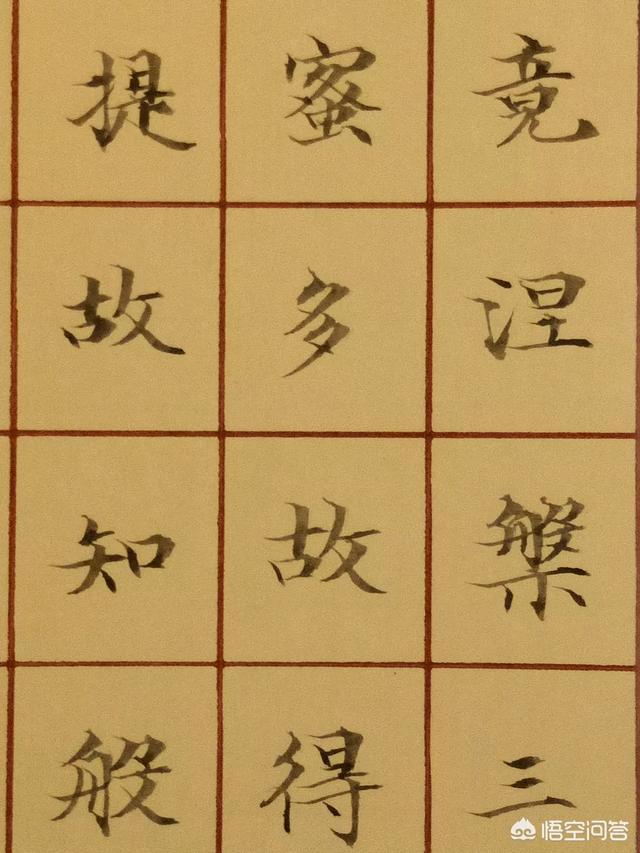 竟涅槃三
蜜多故得
提故知般
悟空问答